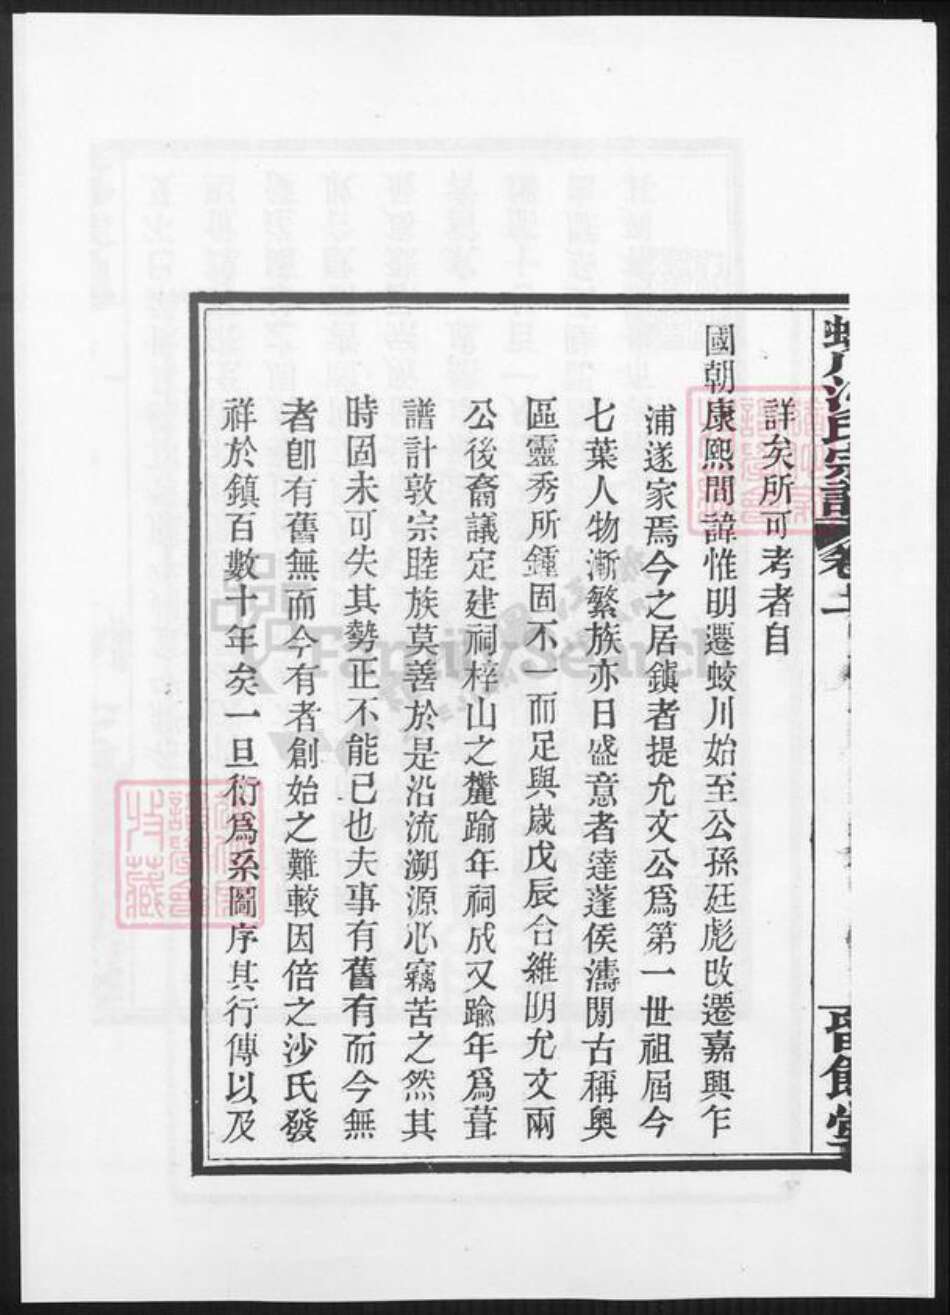 蛟川沙氏宗譜 卷
詳矣所可考者自
國朝康熙間諱惟明遷蛟川始至公孫廷彪改遷嘉興乍
浦遂家焉今之居鎮者提允文公爲第一世祖屆今
七葉人物漸繁族亦日盛意者達蓬侯濤閒古稱奧
區靈秀所鍾固不一而足與歲戊辰合維明允文兩
公後裔議定建祠梓山之麓踰年祠成又踰年爲葺
譜計敦宗睦族莫善於是沿流溯源心竊苦之然其
時固未可失其勢正不能已也夫事有舊有而今無
者卽有舊無而今有者創始之難較因倍之沙氏發
祥於鎮百數十年矣一旦衍爲系圖序其行傳以及
FamilySearch